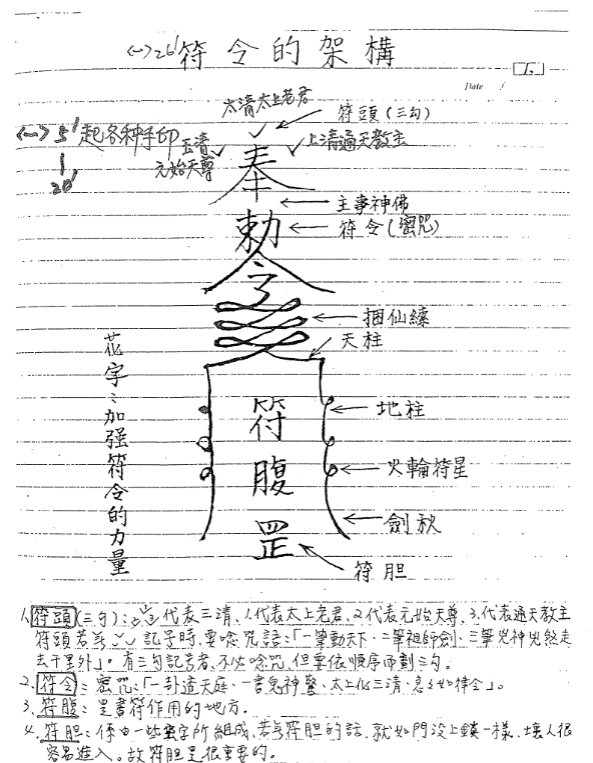 (一) 26' 符令的架構
1.
Date
太清太上老君
符頭(三勾)
(一) 5' 起各种手印
20'
玉清
元始天尊
上清通天教主
奉
主事神佛
勅
符令(密咒)
令
捆仙繩
天柱
花字:加强符令的力量
符腹罡
地柱
火輪符星
劍秋
符胆
1. 符頭(三勾):代表三清、1.代表太上老君、2.代表元始天尊、3.代表通天教主
符頭若為 記号時,要唸咒語:「一筆動天下、二筆祖師劍、三筆兇神兇煞走
去千里外」。有三勾記号者,不必唸咒,但要依順序而劃三勾。
2. 符令:密咒:「一卦透天庭、一書鬼神驚、太上化三清、急急如律令」。
3. 符腹:是書符作用的地方.
4. 符胆:係由一些密字所組成,若無符胆的話,就如門没上鎖一樣,壞人很
容易進入。故符胆是很重要的.